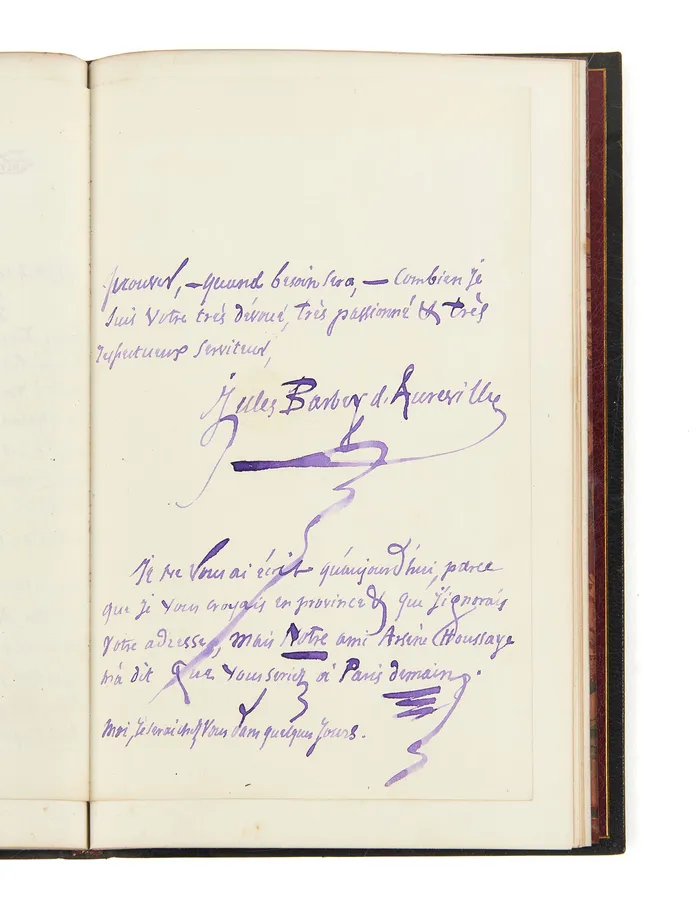 prouver, — quand besoin sera, — Combien je
suis votre très dévoué, très passionné & très
respectueux serviteur,
Jules Barbey d'Aurevilly
Je ne vous ai écrit qu'aujourd'hui, parce
que je vous croyais en province & que j'ignorais
votre adresse, mais Notre ami Arsène Houssaye
m'a dit que vous seriez à Paris demain.
Moi, je serai chez vous dans quelques jours.